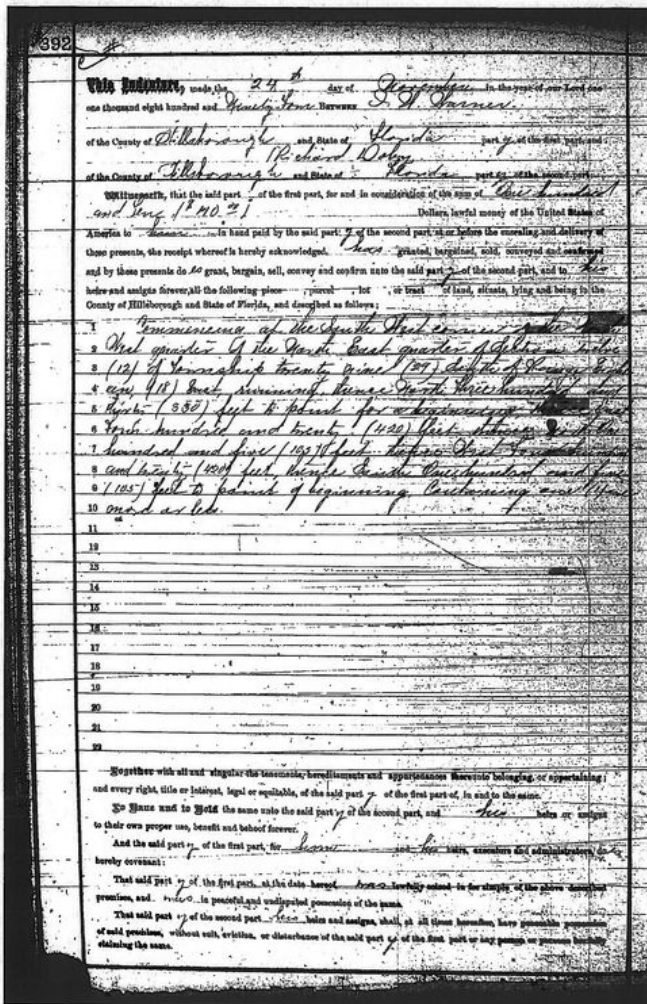 392
This Indenture, made the 24th day of November in the year of our Lord one
one thousand eight hundred and Ninety four BETWEEN J. W. Warner
of the County of Hillsborough and State of Florida part y of the first part, and
Richard Doby
of the County of Hillsborough and State of Florida part y of the second part
Witnesseth, that the said part of the first part, for and in consideration of the sum of One hundred
and Dollars, lawful money of the United States of
America to in hand paid by the said part y of the second part, at or before the ensealing and delivery of
these presents, the receipt whereof is hereby acknowledged, has granted, bargained, sold, conveyed and confirmed
and by these presents do es grant, bargain, sell, convey and confirm unto the said part y of the second part, and to his
heirs and assigns forever, all the following piece , parcel , lot , or tract of land, situate, lying and being in the
County of Hillsborough and State of Florida, and described as follows;
1 Commencing at the South West corner of the
2 West quarter of the North East quarter of Section
3 (12) of Township twenty nine (29) South of Range Eigh
4 (18) East, running thence North three hundred and
5 thirty (330) feet to point for a beginning thence
6 Four hundred and twenty (420) feet
7 hundred and five (105) feet thence West Four hundred
8 and twenty (420) feet thence South One hundred and five
9 (105) feet to point of beginning Containing one (1)
10 more or less.
11
12
13
14
15
16
17
18
19
20
21
22
Together with all and singular the tenements, hereditaments and appurtenances thereunto belonging, or appertaining;
and every right, title or interest, legal or equitable, of the said part y of the first part, of, in and to the same.
To Have and to Hold the same unto the said part y of the second part, and his heirs or assigns
to their own proper use, benefit and behoof forever.
And the said part y of the first part, for and his heirs, executors and administrators, do
hereby covenant:
That said part y of the first part, at the date hereof has lawfully seized in fee simple, of the above described
premises, and was in peaceful and undisputed possession of the same.
That said part y of the second part his heirs and assigns, shall, at all times hereafter, have peaceable
of said premises, without suit, eviction, or disturbance of the said part y of the first part or any person or persons lawfully
claiming the same.